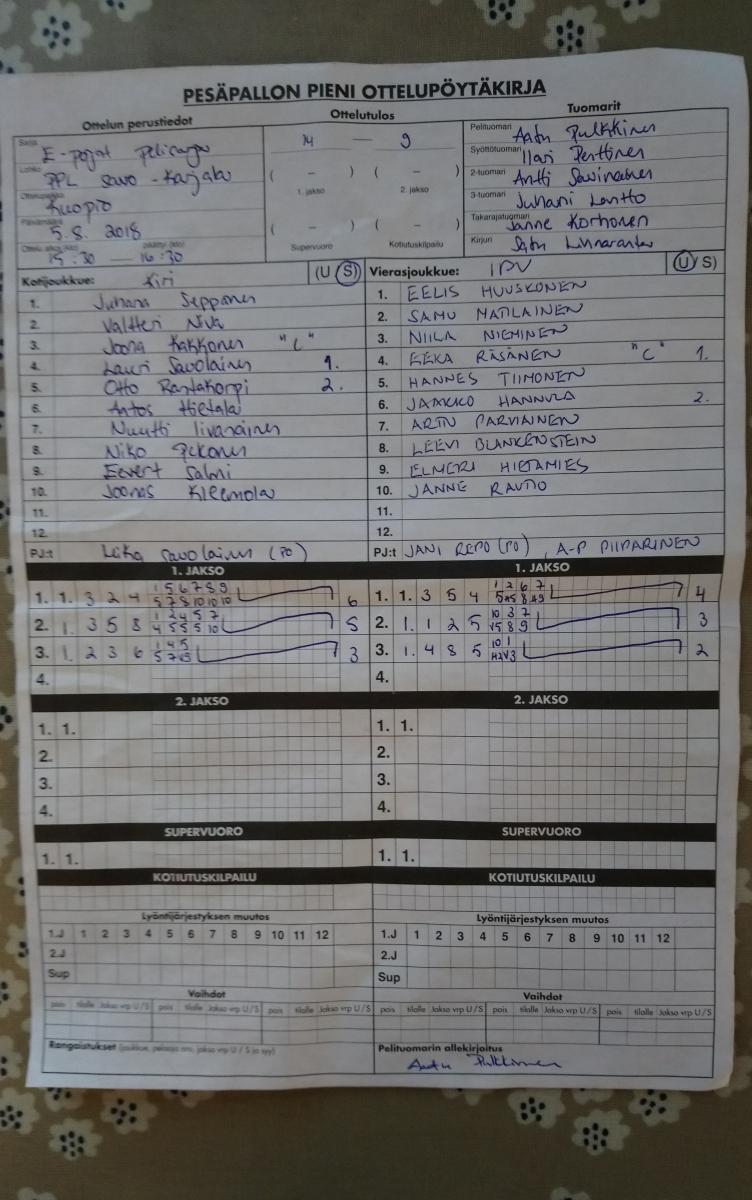 PESÄPALLON PIENI OTTELUPÖYTÄKIRJA
Ottelun perustiedot
Ottelutulos
Tuomarit
Sarja
E-pojat
Lohko
PPL Savo-Karjala
Kuopio
5.8. 2018
15:30 — 16:30
14 — 9
( – ) ( – )
1. jakso 2. jakso
( – ) ( – )
Supervuoro Kotiutuskilpailu
Pelituomari Aatu Pulkkinen
Syöttötuomari Ilari Penttinen
2-tuomari Antti Savinainen
3-tuomari Juhani Lantto
Takarajatuomari Janne Korhonen
Kirjuri Satu Linnaranta
Kotijoukkue: Kiri (U S)
1. Juhana Sepponen
2. Valtteri Niva
3. Joona Kakkonen "C"
4. Lauri Savolainen 1.
5. Otto Rantakorpi 2.
6. Antos Hietala
7. Nuutti Iivanainen
8. Niko Pekonen
9. Eevert Salmi
10. Joonas Kleemola
11.
12.
PJ:t Savolainen (PO)
Vierasjoukkue: IPV (U / S)
1. EELIS HUUSKONEN
2. SAMU MATILAINEN
3. NIILA NIEMINEN
4. EEKA RÄSÄNEN "C" 1.
5. HANNES TIIMONEN
6. JAAKKO HANNULA 2.
7. ARTU PARVIAINEN
8. LEEVI BLANKENSTEIN
9. ELMERI HIETAMIES
10. JANNE RAUTIO
11.
12.
PJ:t JANI REPO (PO), A-P PIIPARINEN
1. JAKSO
1. 1. 3 2 4 1 5 6 7 8 9 6
5 7 8 10 10 10
2. 1. 3 5 8 1 2 4 5 7 5
4 5 5 5 10
3. 1. 2 3 6 1 4 5 3
4.
1. JAKSO
1. 1. 3 5 4 1 2 6 7 4
2. 1. 1 2 5 10 3 7 3
V5 8 9
3. 1. 4 8 5 10 1 2
4.
2. JAKSO
1. 1.
2.
3.
4.
2. JAKSO
1. 1.
2.
3.
4.
SUPERVUORO
1. 1.
SUPERVUORO
1. 1.
KOTIUTUSKILPAILU
KOTIUTUSKILPAILU
Lyöntijärjestyksen muutos
1.J 1 2 3 4 5 6 7 8 9 10 11 12
2.J
Sup
Lyöntijärjestyksen muutos
1.J 1 2 3 4 5 6 7 8 9 10 11 12
2.J
Sup
Vaihdot
pois tilalle Jakso vrp U / S pois tilalle Jakso vrp U / S pois tilalle Jakso vrp U / S
Vaihdot
pois tilalle Jakso vrp U / S pois tilalle Jakso vrp U / S pois tilalle Jakso vrp U / S
Rangaistukset (joukkue, pelaaja nro, jakso vrp U / S ja syy)
Pelituomarin allekirjoitus
Aatu Pulkkinen